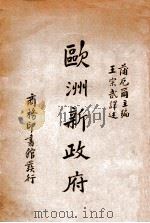 蒲尼爾主編
王宗武譯述
歐洲新政府
商務印書館發行